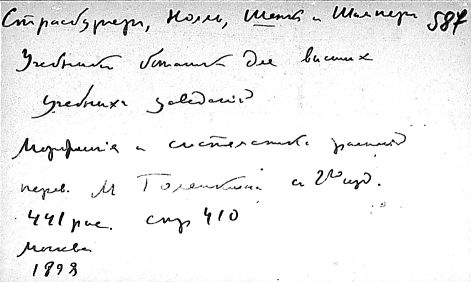 Страсбургер, Нолль, Шенк и Шимпер 587
Учебник ботаники для высших
учебных заведений
Морфология и систематика растений
перев. М Голенкина с 2го изд.
441 рис. стр 410
Москва
1898